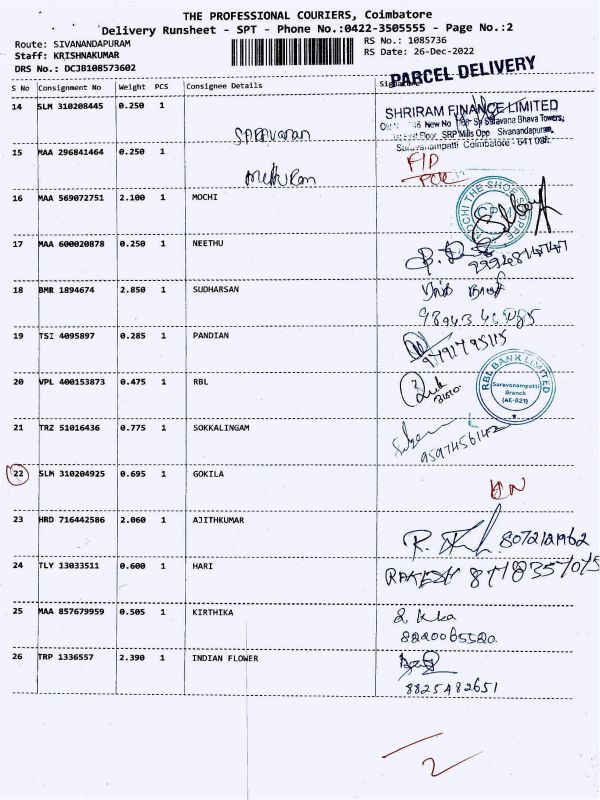 THE PROFESSIONAL COURIERS, Coimbatore
Delivery Runsheet - SPT - Phone No.:0422-3505555 - Page No.:2
Route: SIVANANDAPURAM
RS No.: 1085736
Staff: KRISHNAKUMAR
RS Date: 26-Dec-2022
DRS No.: DCJB108573602
PARCEL DELIVERY
S No Consignment No Weight PCS Consignee Details
14 SLM 310208445 0.250 1
SHRIRAM FINANCE LIMITED
SRP Mills Opp Sivanandapuram,
Saravanampatti Coimbatore
15 MAA 296841464 0.250 1
16 MAA 569072751 2.100 1 MOCHI
MOCHI THE SHOE SHOPPE
17 MAA 600020878 0.250 1 NEETHU
18 BMR 1894674 2.850 1 SUDHARSAN
19 TSI 4095897 0.285 1 PANDIAN
9791795115
20 VPL 400153873 0.475 1 RBL
RBL BANK LIMITED
Saravanampatti
Branch
(AE-821)
21 TRZ 51016436 0.775 1 SOKKALINGAM
9597456142
22 SLM 310204925 0.695 1 GOKILA
23 HRD 716442586 2.060 1 AJITHKUMAR
8072121962
24 TLY 13033511 0.600 1 HARI
RAKESH
25 MAA 857679959 0.505 1 KIRTHIKA
8220065520
26 TRP 1336557 2.390 1 INDIAN FLOWER
8825482651
2